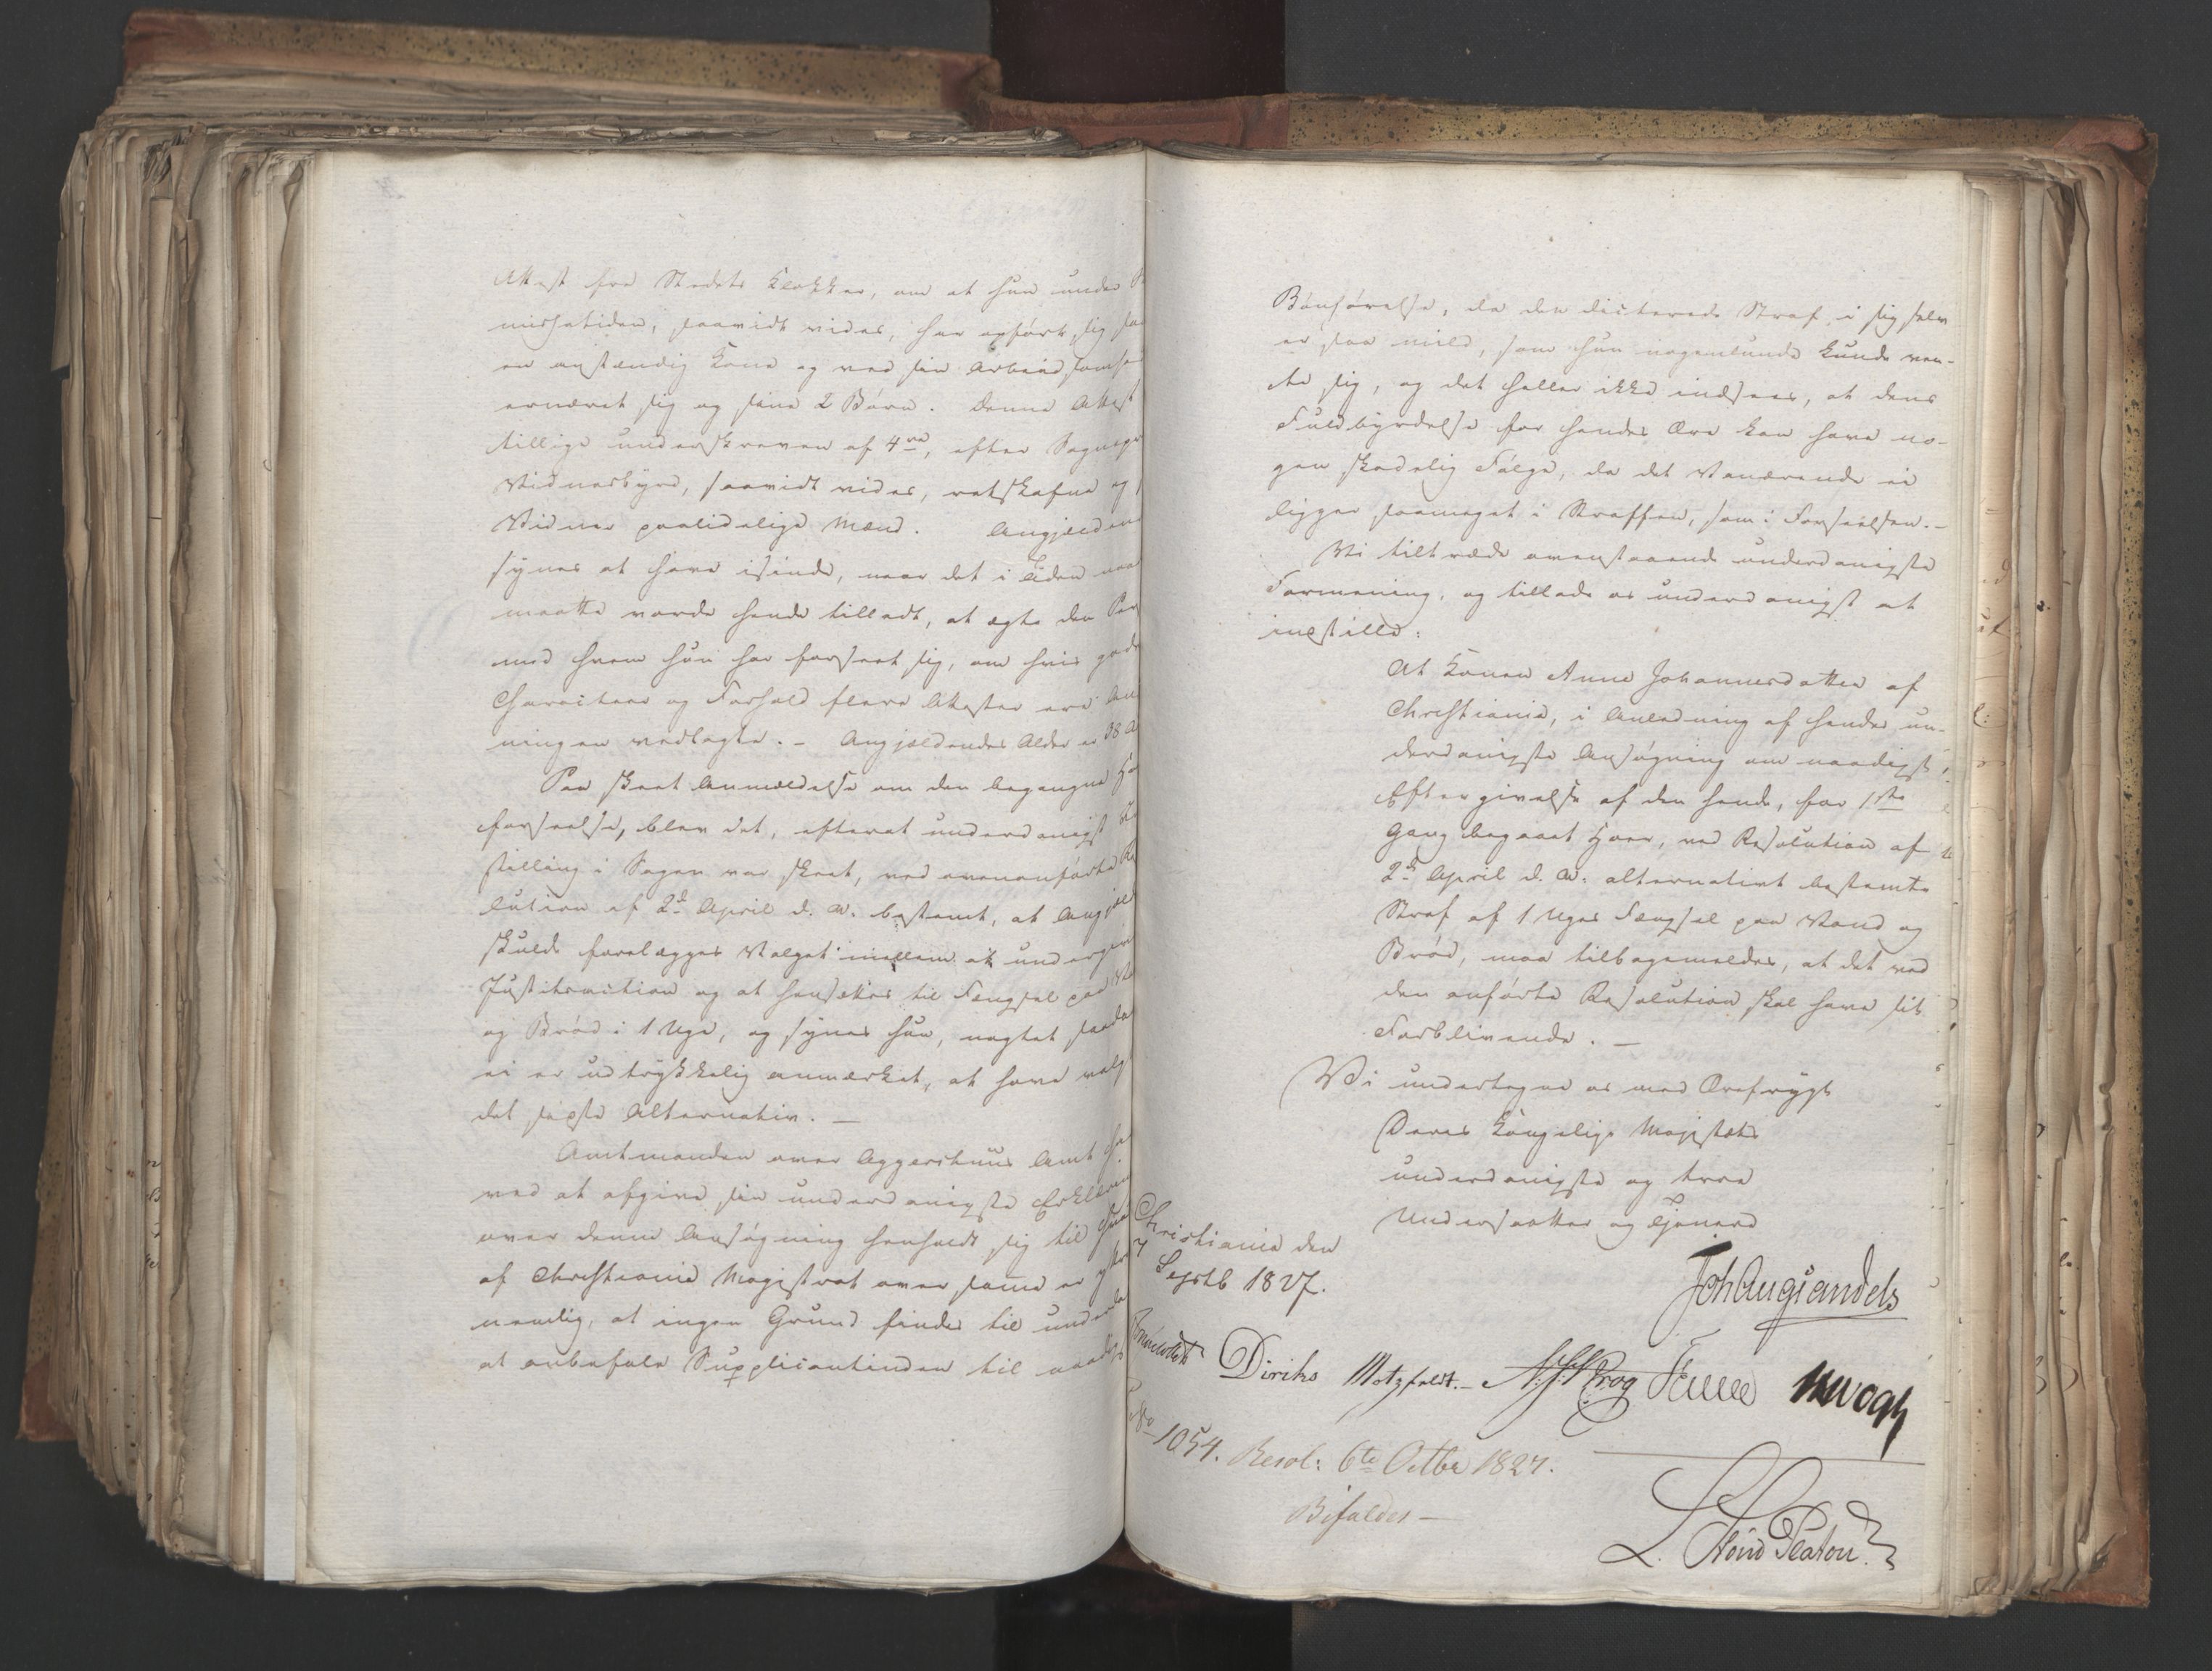 Attest fra Stedets Klokker, om at hun under
missetiden, saavidt vides, har opført sig som
en anstændig Kone og ved sin Arbeidsomhed
ernæret sig og sine 2 Børn. Denne Attest
tillige underskreven af 4re, efter Sognepr
Vidnesbyrd, saavidt vides, retskafne og
Vidner paalidelige Mænd. Angjælden
synes at have isinde, naar det i Tiden
maatte vorde hende tilladt, at ægte den Per
med hvem hun har forseet sig, om hvis gode
Charakteer og Forhold flere Attester ere An
ningen vedlagte. - Angjældendes Alder er 38 A
Paa skeet Anmældelse om den begangne
forseelse, blev det, efterat underdanigst
stilling i Sagen var skeet, ved ovenanførte Re
lution af 2d April d. A. bestemt, at Angjæld
skulde forelægges Valget imellem at undergive
Justitsaction og at hensættes til Fængsel paa
og Brød i 1 Uge, og synes hun, uagtet saada
ei er udtrykkelig anmærket, at have valg
det sidste Alternativ. —
Amtmanden over Aggershuus Amt
ved at afgive sin underdanigste Erklæring
over denne Ansøgning henholdt sig til
af Christiania Magistrat over samme er
nemlig, at ingen Grund findes til under
at anbefale Supplicantinden til naadigst
Bønhørelse, da den dicterede Straf i sig selv
er saa mild, som hun nogenlunde kunde ven-
te sig, og det heller ikke indsees, at dens
Fuldbyrdelse for hendes Ære kan have no-
gen skadelig Følge, da det Vanærende ei
ligger saameget i Straffen, som i Forseelsen. -
Vi tiltræde ovenstaaende underdanigste
Formening, og tillade os underdanigst at
indstille:
At Konen Anne Johannesdatter af
Christiania, i Anledning af hendes un-
derdanigste Ansøgning om naadigst
Eftergivelse af den hende, for 1ste
Gang begaaet Hoer, ved Resolution af
2d April d. A. alternativt bestemte
Straf af 1 Uges Fængsel paa Vand og
Brød, maa tilbagemeldes, at det ved
den anførte Resolution skal have sit
Forblivende. —
Vi undertegne os med Ærefrygt
Deres Kongelige Majestæts
underdanigste og troe
Undersaatter og Tjenere
Christiania den
7 Septb 1827.
Joh Aug Sandels
Diriks Motzfeldt. - Krog Fasting
No 1054. Resol: 6te Octbr 1827.
Bifaldes —